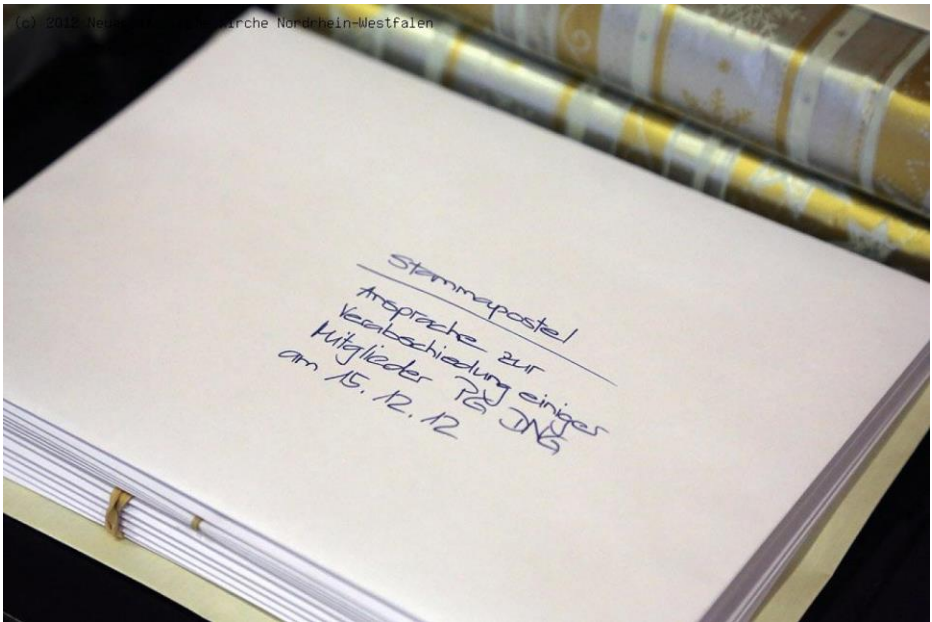 (c) 2012 Neue Kirche Nordrhein-Westfalen
Stammapostel
Ansprache zur
Verabschiedung einiger
Mitglieder PG DNG
am 15.12.12